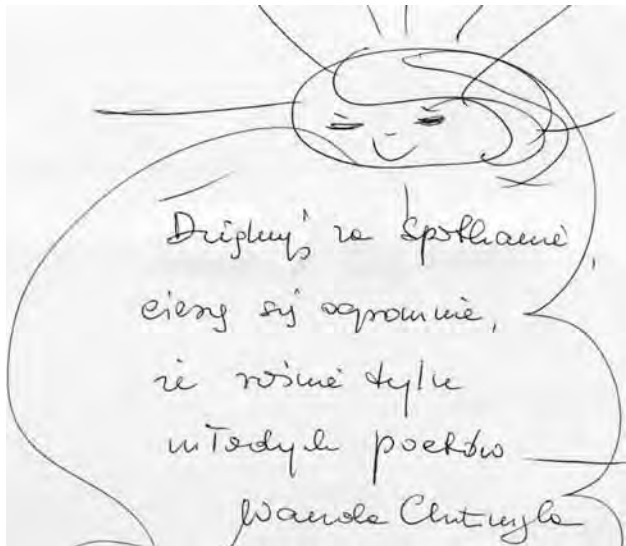 Dziękuję za spotkanie,
cieszę się ogromnie,
że rośnie tylu
młodych poetów
Wanda Chotomska